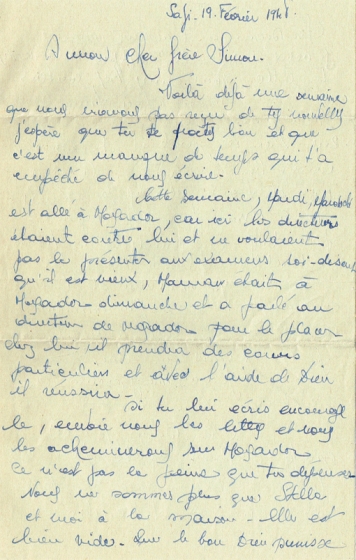 Safi. 19. Février 194
A mon cher frère Simon.
Voilà déjà une semaine
que nous n'avons pas reçu de tes nouvelles
j'espère que tu te portes bien et que
c'est un manque de temps qui t'a
empêché de nous écrire.
Cette semaine, Mardi,
est allé à Mogador, car ici les directeurs
étaient contre lui et ne voulaient
pas le présenter aux examens soi-disant
qu'il est vieux, Maman était à
Mogador dimanche et a parlé au
directeur de Mogador pour le placer
chez lui il prendra des cours
particuliers et avec l'aide de Dieu
il réussira -
Si tu lui écris encourage
le, envoie nous les lettres et nous
les acheminerons sur Mogador
ce n'est pas la peine que tu dépenses
Nous ne sommes plus que Stella
et moi à la maison - Elle est
bien vide. Que le bon Dieu puisse